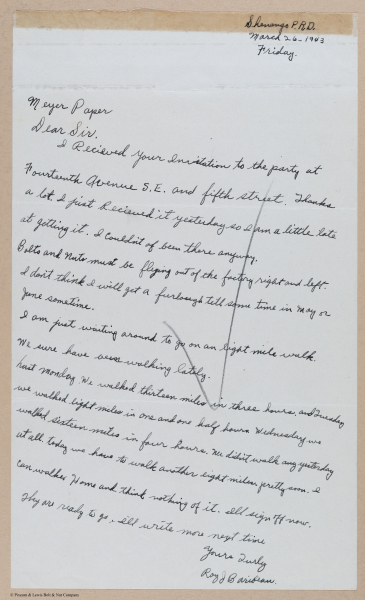 Shenango P.R.D.
March 26-1943
Friday.
Meyer Paper
Dear Sir.
I Recieved Your Invitation to the party at
Fourteenth Avenue S.E. and fifth street. Thanks
a lot. I just Recieved it yesterday so I am a little late
at getting it. I Couldn't of been there anyway.
Bolts and Nuts must be flying out of the factory right and left.
I don't think I will get a furlough till some time in May or
June sometime.
I am just waiting around to go on an Eight mile walk.
We sure have been walking lately.
Last Monday We walked thirteen miles in three hours, and Tuesday
we walked Eight miles in one and one half hours Wednesday we
walked sixteen miles in four hours. We didn't walk any yesterday
at all today we have to walk another eight miles pretty soon. I
Can walk Home and think nothing of it. I'll sign off now.
They are ready to go. I'll write more next time
Yours Truly
Roy J Barideau.
© Pearson & Lewis Bolt & Nut Company